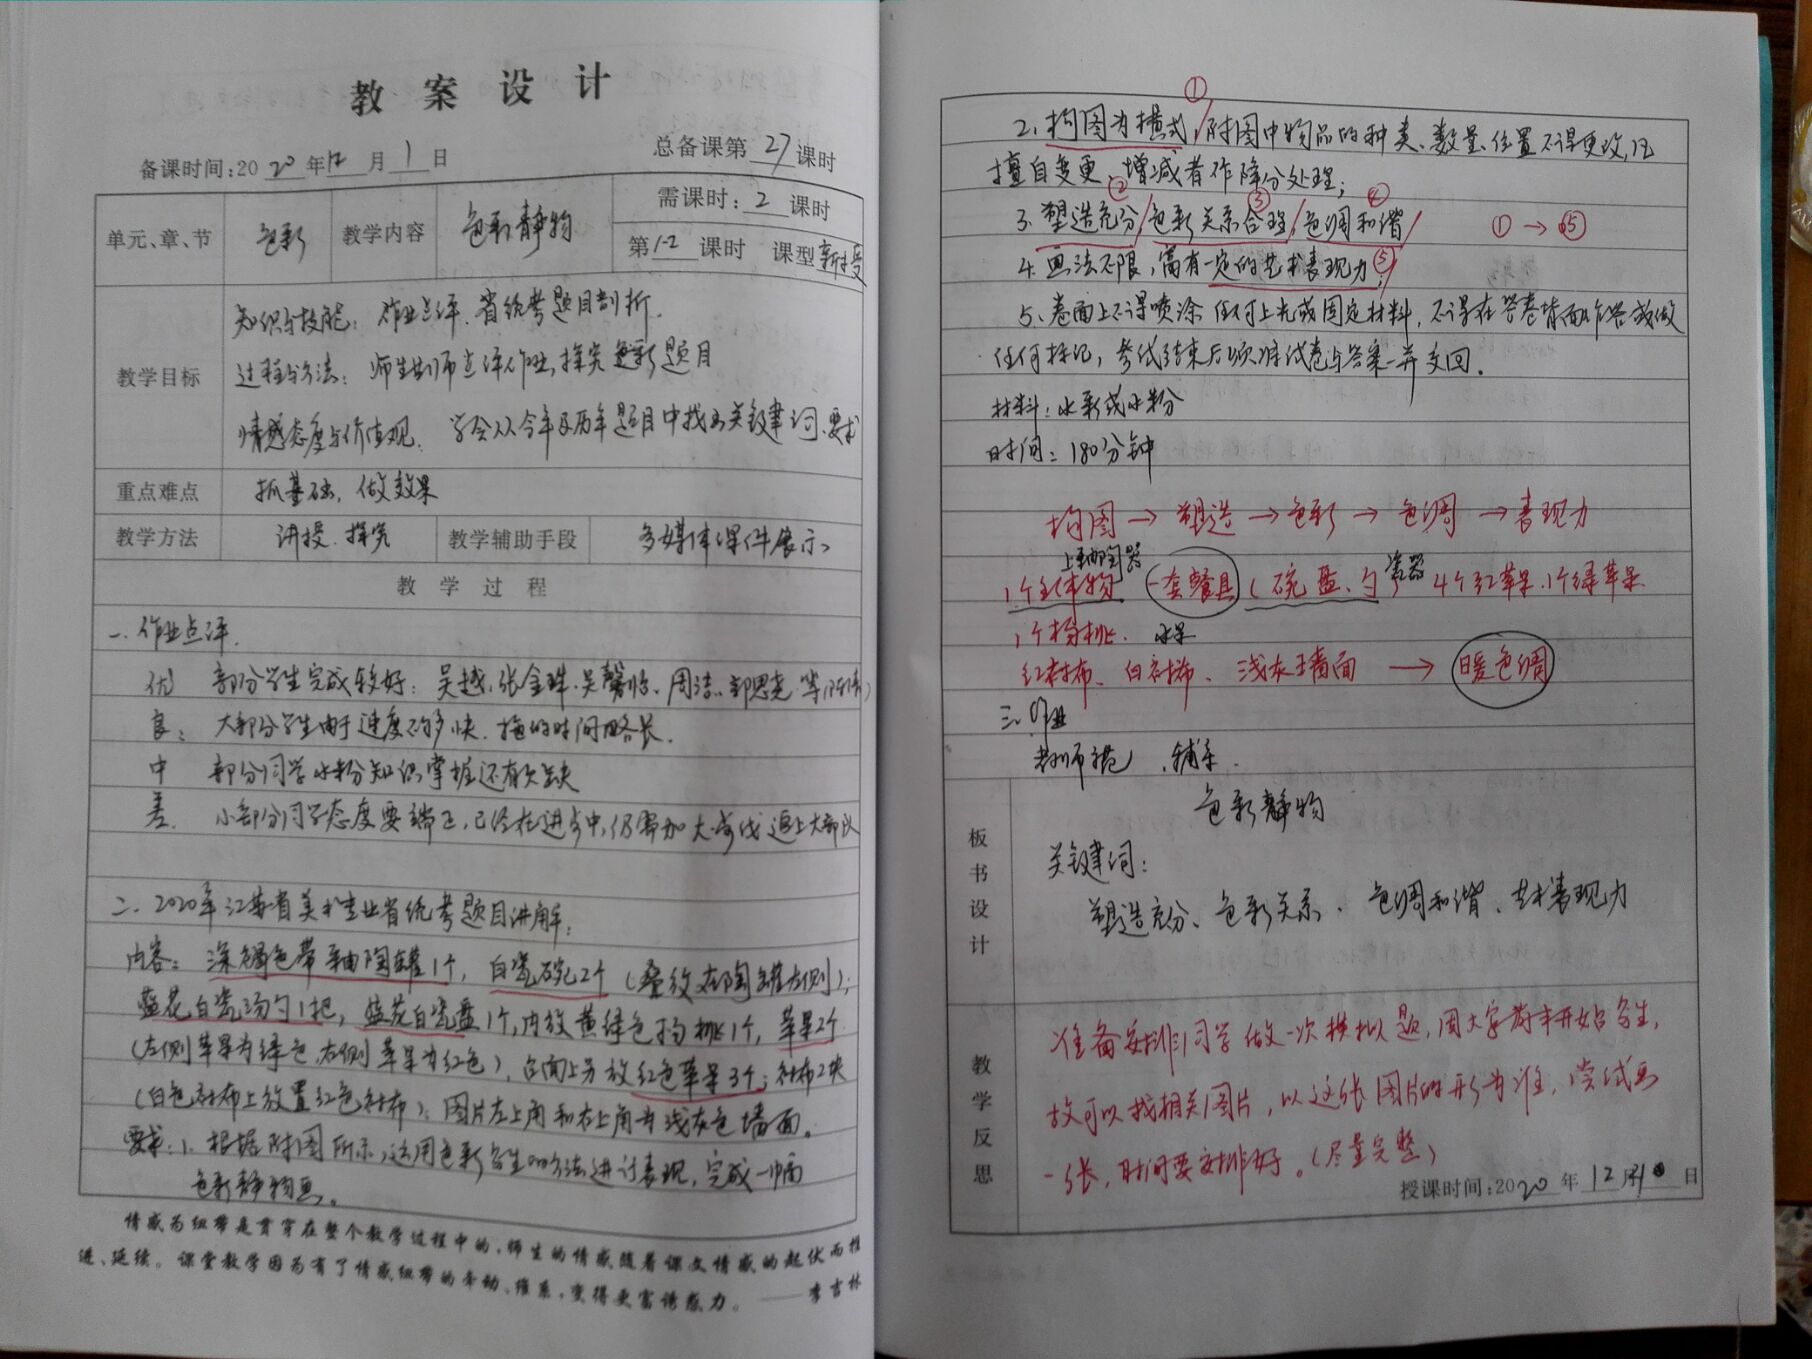 教案设计
备课时间:2020年12月1日
总备课第27课时
单元、章、节 色彩 教学内容 色彩静物 需课时:2课时
第1-2课时 课型 新授
教学目标
知识与技能：作业点评、省统考题目剖析.
过程与方法：师生点评作业,探究色彩题目
情感态度与价值观：学会从今年及历年题目中找出关键词、要求
重点难点 抓基础，做效果
教学方法 讲授、探究 教学辅助手段 多媒体课件展示
教学过程
一、作业点评.
优 部分学生完成较好：吴越、张金珠、吴馨怡、周洁、等
良： 大部分学生由于速度不够快、拖的时间略长.
中 部分同学水粉知识掌握还有欠缺
差. 小部分同学态度要端正,已经在进步中,仍需加大 追上大部队
二、2020年江苏省美术专业省统考题目讲解：
内容：深褐色带釉陶罐1个，白瓷碗2个（叠放在陶罐左侧）；
蓝花白瓷汤勺1把，蓝花白瓷盘1个,内放黄绿色杨桃1个，苹果2个
（左侧苹果为绿色,右侧苹果为红色），台面上另放红色苹果3个；衬布2块
（白色衬布上放置红色衬布）；图片左上角和右上角为浅灰色墙面。
要求：1、根据附图所示,运用色彩写生的方法进行表现,完成一幅
色彩静物画。
情感为纽带是贯穿在整个教学过程中的,师生的情感随着课文情感的起伏而推
进、延续。课堂教学因为有了情感纽带的牵动、维系,变得更富诱惑力。——李吉林
①
2、构图为横式,附图中物品的种类、数量、位置不得更改,凡
擅自变更、增减者作降分处理；
② ③ ④
3、塑造充分/色彩关系合理/色调和谐/ ①→⑤
4、画法不限，富有一定的艺术表现力；⑤
5、卷面上不得喷涂任何上光或固定材料，不得在答卷背面作答或做
任何标记，考试结束后须将试卷与答案一并交回.
材料：水彩或水粉
时间：180分钟
构图→塑造→色彩→色调→表现力
上釉陶器 瓷器
1个主体物 一套餐具（碗、盘、勺） 4个红苹果、1个绿苹果
1个杨桃、 水果
红衬布、白衬布、浅灰墙面 → 暖色调
三、作业
老师示范、辅导.
板书设计
色彩静物
关键词：
塑造充分、色彩关系、色调和谐、艺术表现力
教学反思
准备安排同学做一次模拟题,因大家尚未开始写生,
故可以找相关图片，以这张图片的形为准，尝试画
一张，时间要安排好。（尽量完整）
授课时间:2020年12月10日